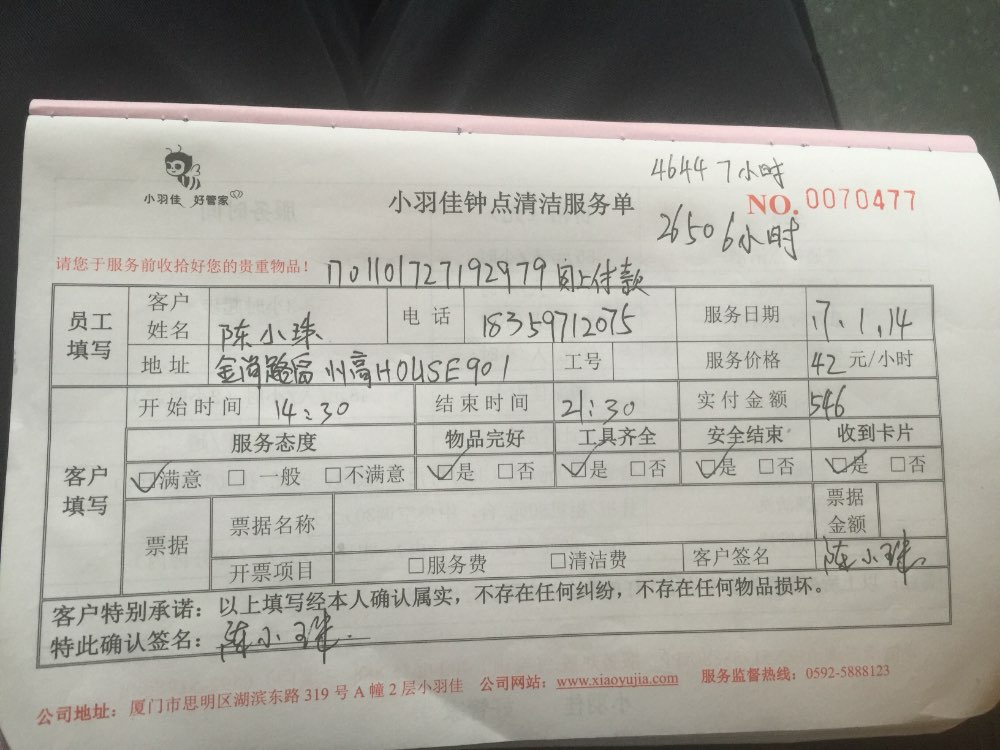 小羽佳 好管家
小羽佳钟点清洁服务单
4644 7小时
NO. 0070477
2650 6小时
请您于服务前收拾好您的贵重物品!
1701101727192979 网上付款
员工填写 客户姓名 陈小珠 电话 18359712075 服务日期 17.1.14
地址 金尚路 HOUSE901 工号 服务价格 42 元/小时
客户填写 开始时间 14:30 结束时间 21:30 实付金额 546
服务态度 物品完好 工具齐全 安全结束 收到卡片
☑满意 □一般 □不满意 ☑是 □否 ☑是 □否 ☑是 □否 ☑是 □否
票据 票据名称 票据金额
开票项目 □服务费 □清洁费 客户签名 陈小珠
客户特别承诺:以上填写经本人确认属实,不存在任何纠纷,不存在任何物品损坏。
特此确认签名:陈小珠
公司地址:厦门市思明区湖滨东路 319 号 A 幢 2 层小羽佳 公司网站:www.xiaoyujia.com 服务监督热线:0592-5888123